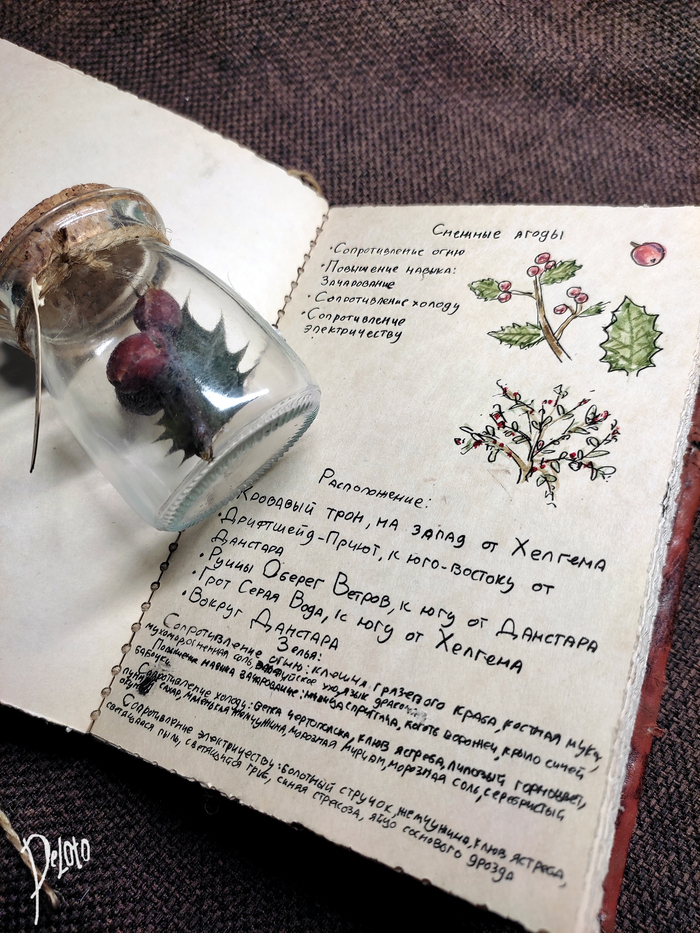 Снежные ягоды
•Сопротивление огню
•Повышение навыка:
Зачарование
•Сопротивление холоду
•Сопротивление
электричеству
Расположение:
Кровавый трон, на запад от Хелгема
•Дрифтшейд-Приют, к юго-востоку от
Данстара
•Руины Оберег Ветров, к югу от Данстара
•Грот Серая Вода, к югу от Хелгема
•Вокруг Данстара
Зелья:
Сопротивление огню: клешня грязевого краба, костная мука,
мухомор, огненная соль, ухо, язык дракона
Повышение навыка зачарование: сприггана, коготь ворожеи, крыло синей
бабочки
Сопротивление холоду: ветка чертополоха, клюв ястреба, лиловый горноцвет,
лунный сахар, маленькая жемчужина, морозная мириам, морозная соль, серебристый
окунь
Сопротивление электричеству: болотный стручок, жемчужина, клюв ястреба,
светящаяся пыль, светящийся гриб, синяя стрекоза, яйцо соснового дрозда
PeLoto